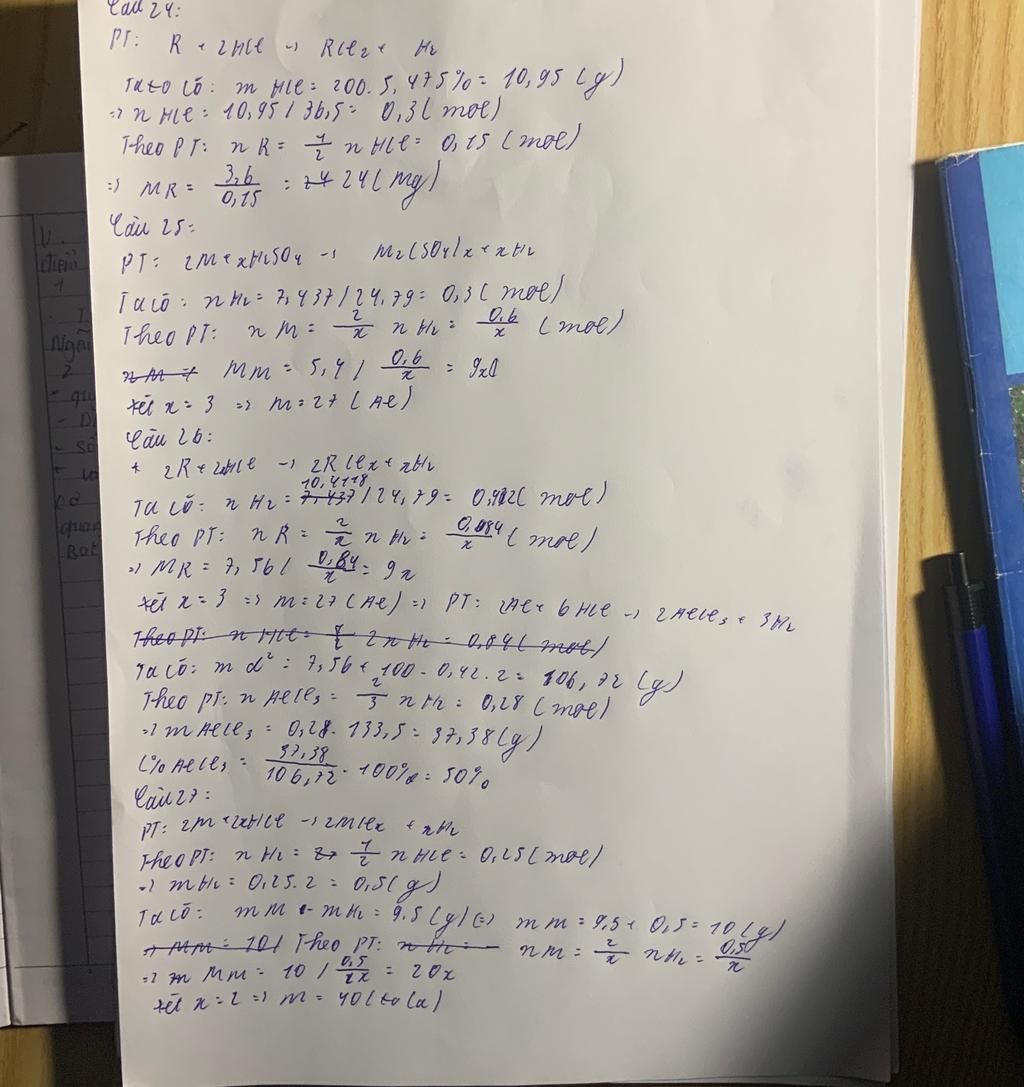 Câu 24:
PT: R + 2HCl -> RCl₂ + H₂
Ta có: m HCl = 200. 5,475% = 10,95 (g)
=> n HCl = 10,95 / 36,5 = 0,3 (mol)
Theo PT: n R = 1/2 n HCl = 0,15 (mol)
=> MR = 3,6/0,15 = 24 (Mg)
Câu 25:
PT: 2M + xH₂SO₄ -> M₂(SO₄)x + xH₂
Ta có: n H₂ = 7,437 / 24,79 = 0,3 (mol)
Theo PT: n M = 2/x n H₂ = 0,6/x (mol)
MM = 5,4 / 0,6/x = 9x
xét x = 3 => M = 27 (Al)
Câu 26:
+ 2R + 2xHCl -> 2RClx + xH₂
Ta có: n H₂ = 10,4118 / 24,79 = 0,42 (mol)
Theo PT: n R = 2/x n H₂ = 0,84/x (mol)
=> MR = 7,56 / 0,84/x = 9x
xét x = 3 => M = 27 (Al) => PT: 2Al + 6HCl -> 2AlCl₃ + 3H₂
Theo PT: n HCl = 2 n H₂ = 0,84 (mol)
Ta có: m d² = 7,56 + 100 - 0,42. 2 = 106,72 (g)
Theo PT: n AlCl₃ = 2/3 n H₂ = 0,28 (mol)
=> m AlCl₃ = 0,28. 133,5 = 37,38 (g)
C% AlCl₃ = 37,38/106,72 . 100% = 50%
Câu 27:
PT: 2M + 2xHCl -> 2MClx + xH₂
Theo PT: n H₂ = 1/2 n HCl = 0,25 (mol)
=> mH₂ = 0,25. 2 = 0,5 (g)
Ta có: mM - mH₂ = 9.5 (g) (=) mM = 9,5 + 0,5 = 10 (g)
=> MM = 10/ Theo PT: n H₂ = n M = 2/x n H₂ = 0,50/x
=> MM = 10 / 0,5/x = 20x
xét x = 2 => M = 40 (Ca)
V.
điểm
1
Ngà
2